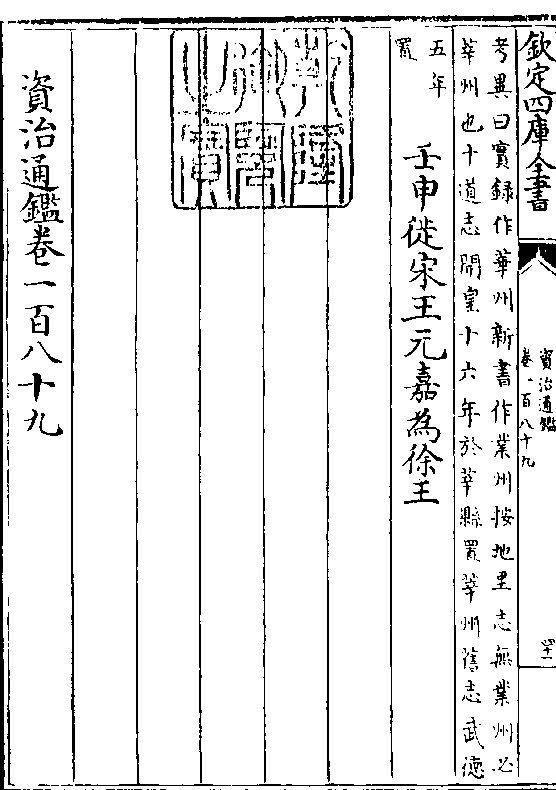 欽定四庫全書
資治通鑑
卷一百八十九
四十一
考異曰實録作華州新書作業州按地里志無業州必
莘州也十道志開皇十六年於莘縣置莘州舊志武德
五年
置
壬申徙宋王元嘉為徐王
乾隆
御覽
之寶
資治通鑑卷一百八十九